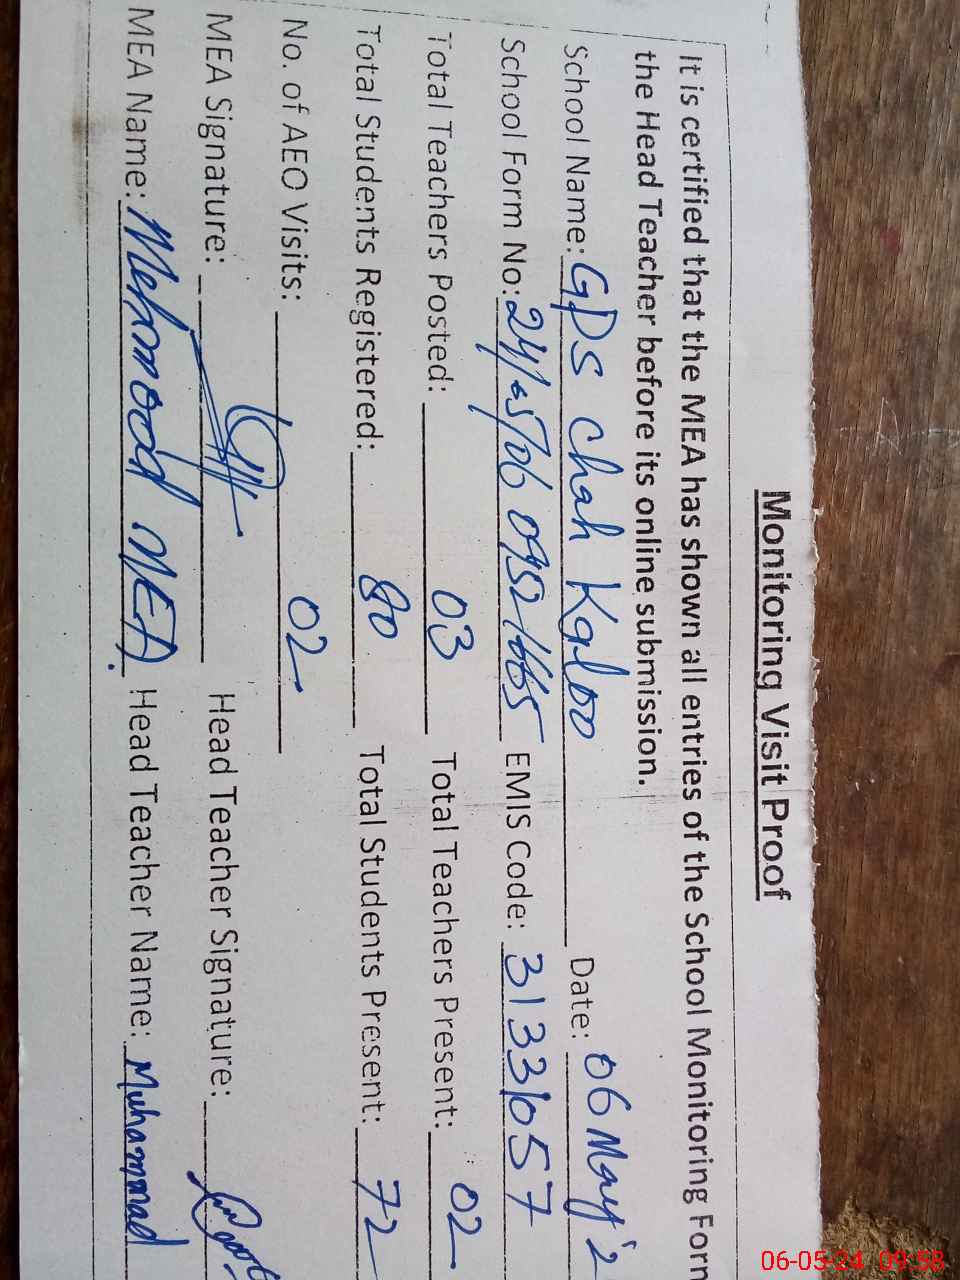 Monitoring Visit Proof
It is certified that the MEA has shown all entries of the School Monitoring Form
the Head Teacher before its online submission.
School Name: GPS Chah Kaloo Date: 06 May '2
School Form No: 24/05/06 0952/665 EMIS Code: 31331057
Total Teachers Posted: 03 Total Teachers Present: 02
Total Students Registered: 80 Total Students Present: 72
No. of AEO Visits: 02
MEA Signature: Head Teacher Signature:
MEA Name: Mehmood MEA. Head Teacher Name: Muhammad
06-05-24 09:58